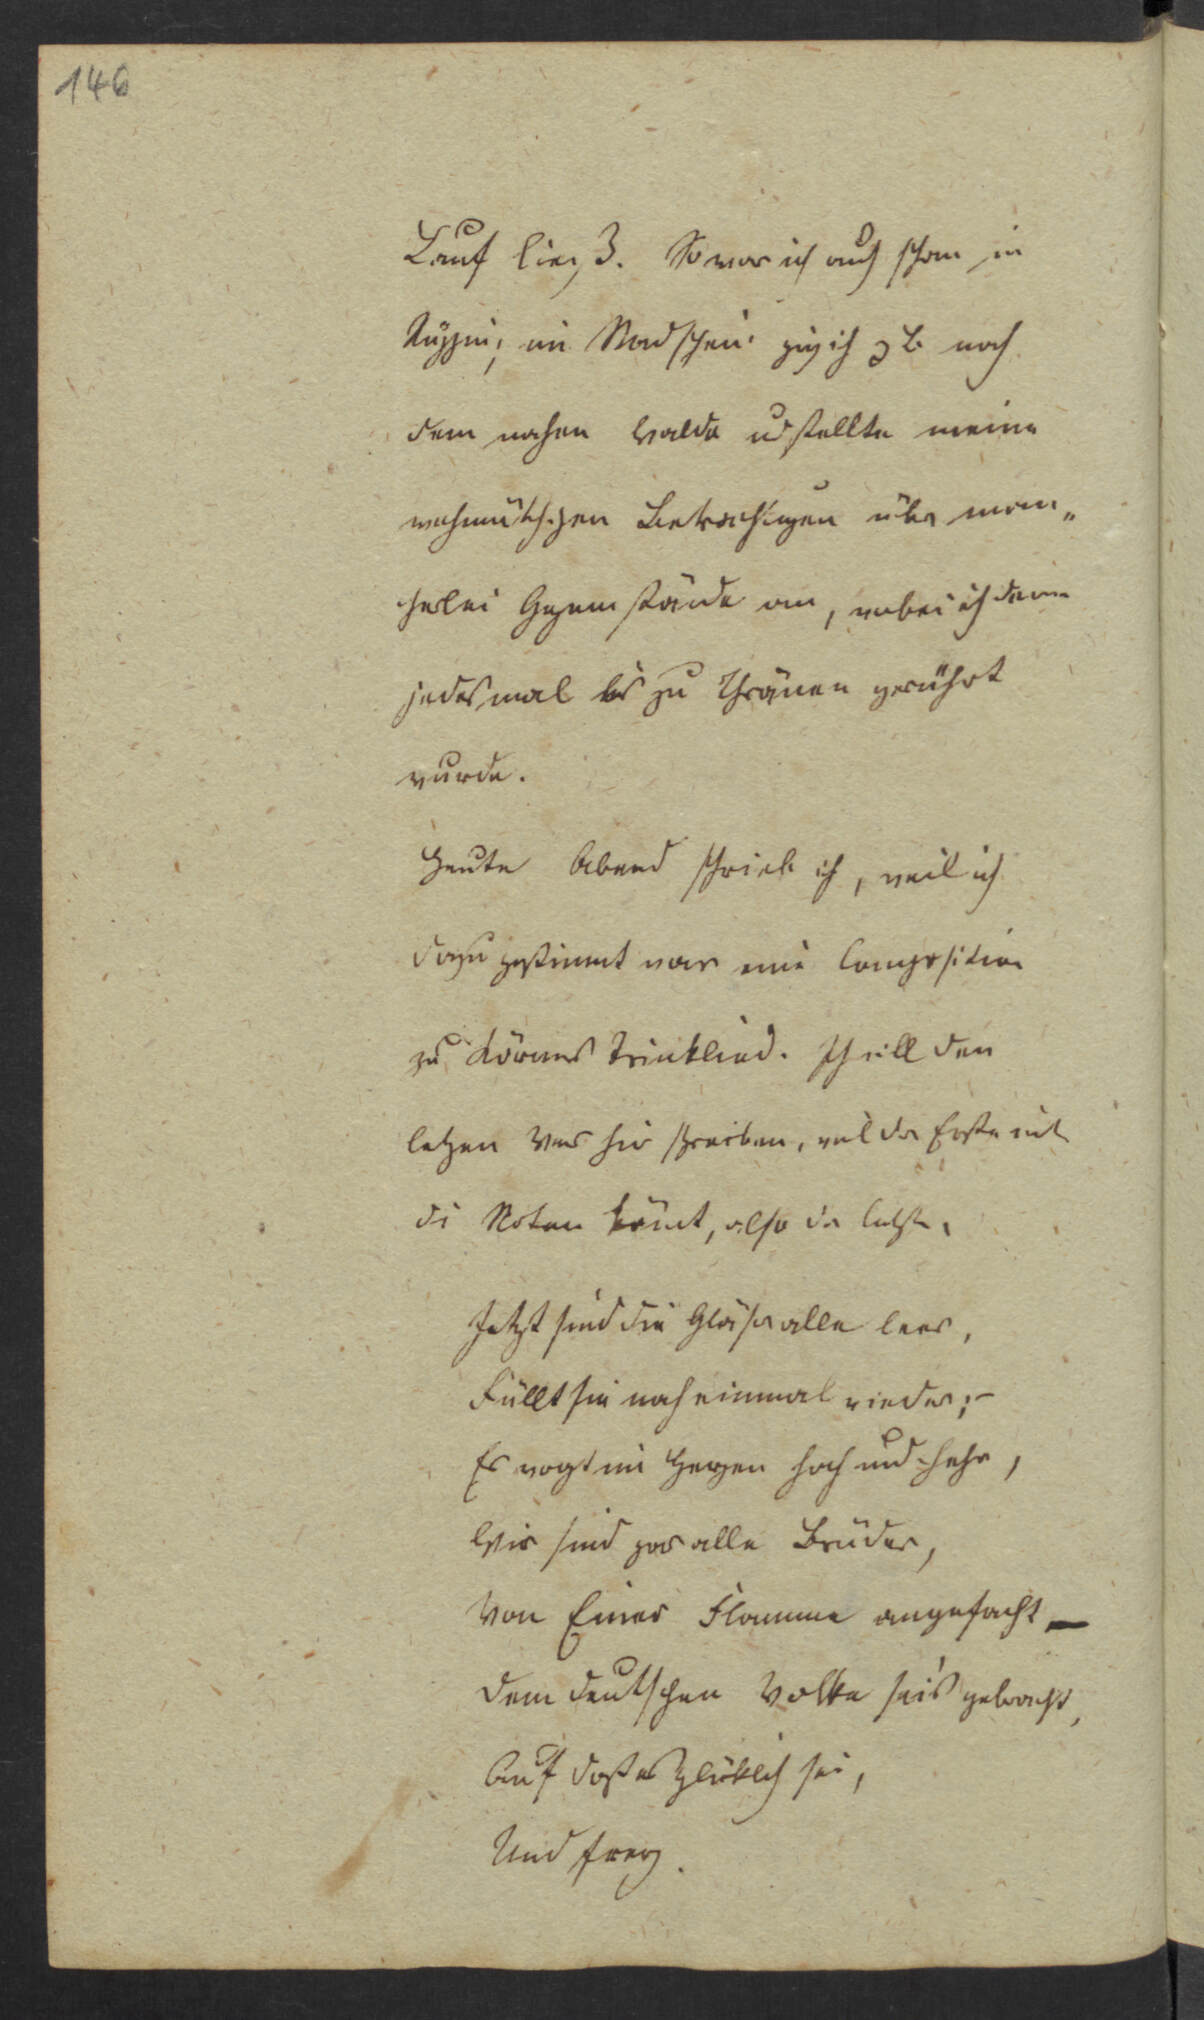 146
Lauf ließ. So war ich auch schon in
im Mondschein ging ich z B. nach
dem nahen Walde u stellte meine
wehmüthigen Betrachtungen über man„
cherlei Gegenstände an, wobei ich dann
jedesmal bis zu Thränen gerührt
wurde.
Heute Abend schrieb ich, weil ich
dazu gestimmt war eine Composition
zu Körners Trinklied. Ich will den
letzen Vers hir schreiben, weil der Erste mit
di Noten kömt, also der letzte.
Jetzt sind die Gläser alle leer,
Füllt sie noch einmal wieder; –
Es wogt im Herzen hoch und hehr,
Wir sind gar alle Brüder,
Von Einer Flamme angefacht –
Dem deutschen Volke sei's gebracht,
Auf daß es glüklich sei,
Und frey.